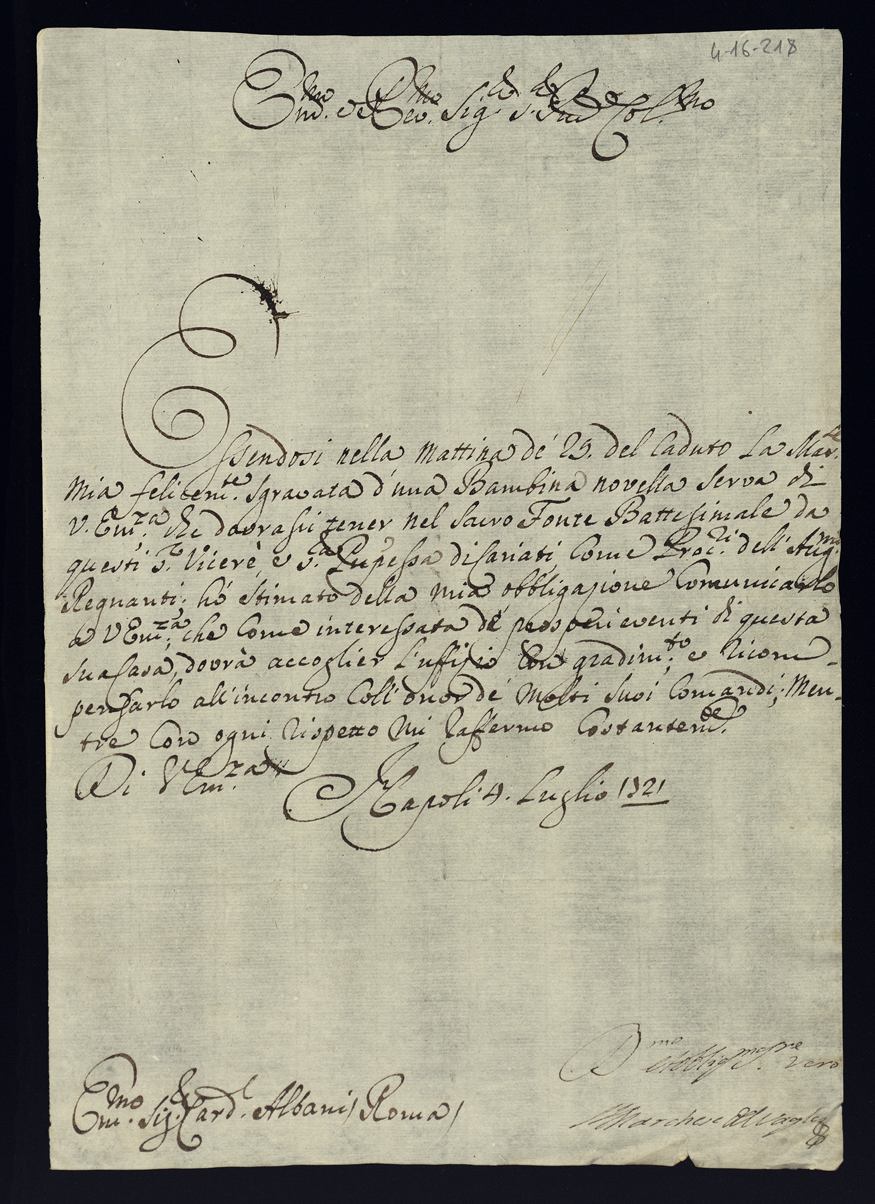 4-16-218
Em.mo e Rev.mo Sig.re Col.mo
Essendosi nella mattina de' 29. del caduto la Mar.
mia felicem.te sgravata d'una Bambina novella serva di
V. Em.za, che dovrassi tener nel sacro Fonte Battesimale da
questi S.ri Vicerè, e come Proc.ri dell' Aug.mi
Regnanti; hò stimato della mia obbligazione comunicarlo
a V Em.za, che come interessata de' prosperi eventi di questa
sua Casa, dovrà accoglier l'uffizio con gradim.to e ricom-
pensarlo all'incontro coll'onor de' molti suoi comandi; Men-
tre con ogni rispetto mi raffermo costantem.te
Di V Em.za
Napoli 4. Luglio 1721
D.mo et obblig.mo ser.re vero
Em.mo Sig.r Card.l Albani / Roma /
Il Marchese